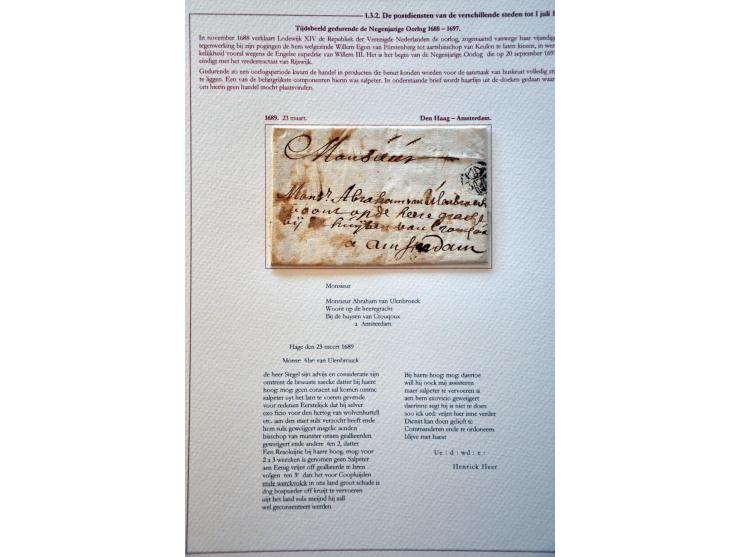 1.3.2. De postdiensten van de verschillende steden tot 1 juli 1
Tijdsbeeld gedurende de Negenjarige Oorlog 1688 – 1697.
In november 1688 verklaart Lodewijk XIV de Republiek der Verenigde Nederlanden de oorlog, zogenaamd vanwege haar vijandig
tegenwerking bij zijn pogingen de hem welgezinde Willem Egon van Fürstenberg tot aartsbisschop van Keulen te laten kiezen, in wer
kelijkheid vooral wegens de Engelse expeditie van Willem III. Het is het begin van de Negenjarige Oorlog die op 20 september 1697
eindigt met het vredestractaat van Rijswijk.
Gedurende zo een oorlogsperiode kwam de handel in producten die benut konden worden voor de aanmaak van buskruit volledig stil
te liggen. Een van de belangrijkste componenten hierin was salpeter. In onderstaande brief wordt haarfijn uit de doeken gedaan waar
om hierin geen handel mocht plaatsvinden.
1689. 23 maart.
Den Haag – Amsterdam.
Monsieur
Monsr Abraham van Ulenbroeck
Woont op de heere gracht
bij de huijsen van
a amsterdam
Monsieur
Monsieur Abraham van Ulenbroeck
Woont op de heeregracht
Bij de huysen van Crouqoux
a Amsterdam
Hage den 23 meert 1689
Monsr: Abr: van Ulenbrouck
de heer Siegel sijn advijs en consideratie sijn
omtrent de bewuste saecke datter bij haere
hoog: mog: geen consent sal komen omme
salpeter uyt het lant te voeren gevende
voor redenen Eerstelijck dat hij selver
exo ficio voor den hertog van wolvenbuttell
etc. aen den staet sulx versocht heeft ende
hem sulx geweijgert insgelx aenden
bisschop van munster onsen geallieerden
geweijgert ende andere ten 2, datter
Een Resolutie bij haere hoog: mog: voor
2 a 3 weecken is genomen geen Salpeter
aen Eenig vrijer off geallieerde te laten
volgen ten 3e dat het voor Coopluijden
ende werckvolck in ons land groot schade is
dog bospoeder off kruijt te vervoeren
uijt het land sulx meijnd hij sall
wel geconsenteert werden
Bij haere hoog: mog: daertoe
will hij oock mij assisteren
maer salpeter te vervoeren is
aen hem exovicio geweijgert
daerinne segt hij is niet te doen
soo ick ued: veijnt hier inne verder
Dienst kan doen gelieft te
Commanderen ende te ordoneren
blijve met haest
Ue : d : wd : e :
Henrick Heer